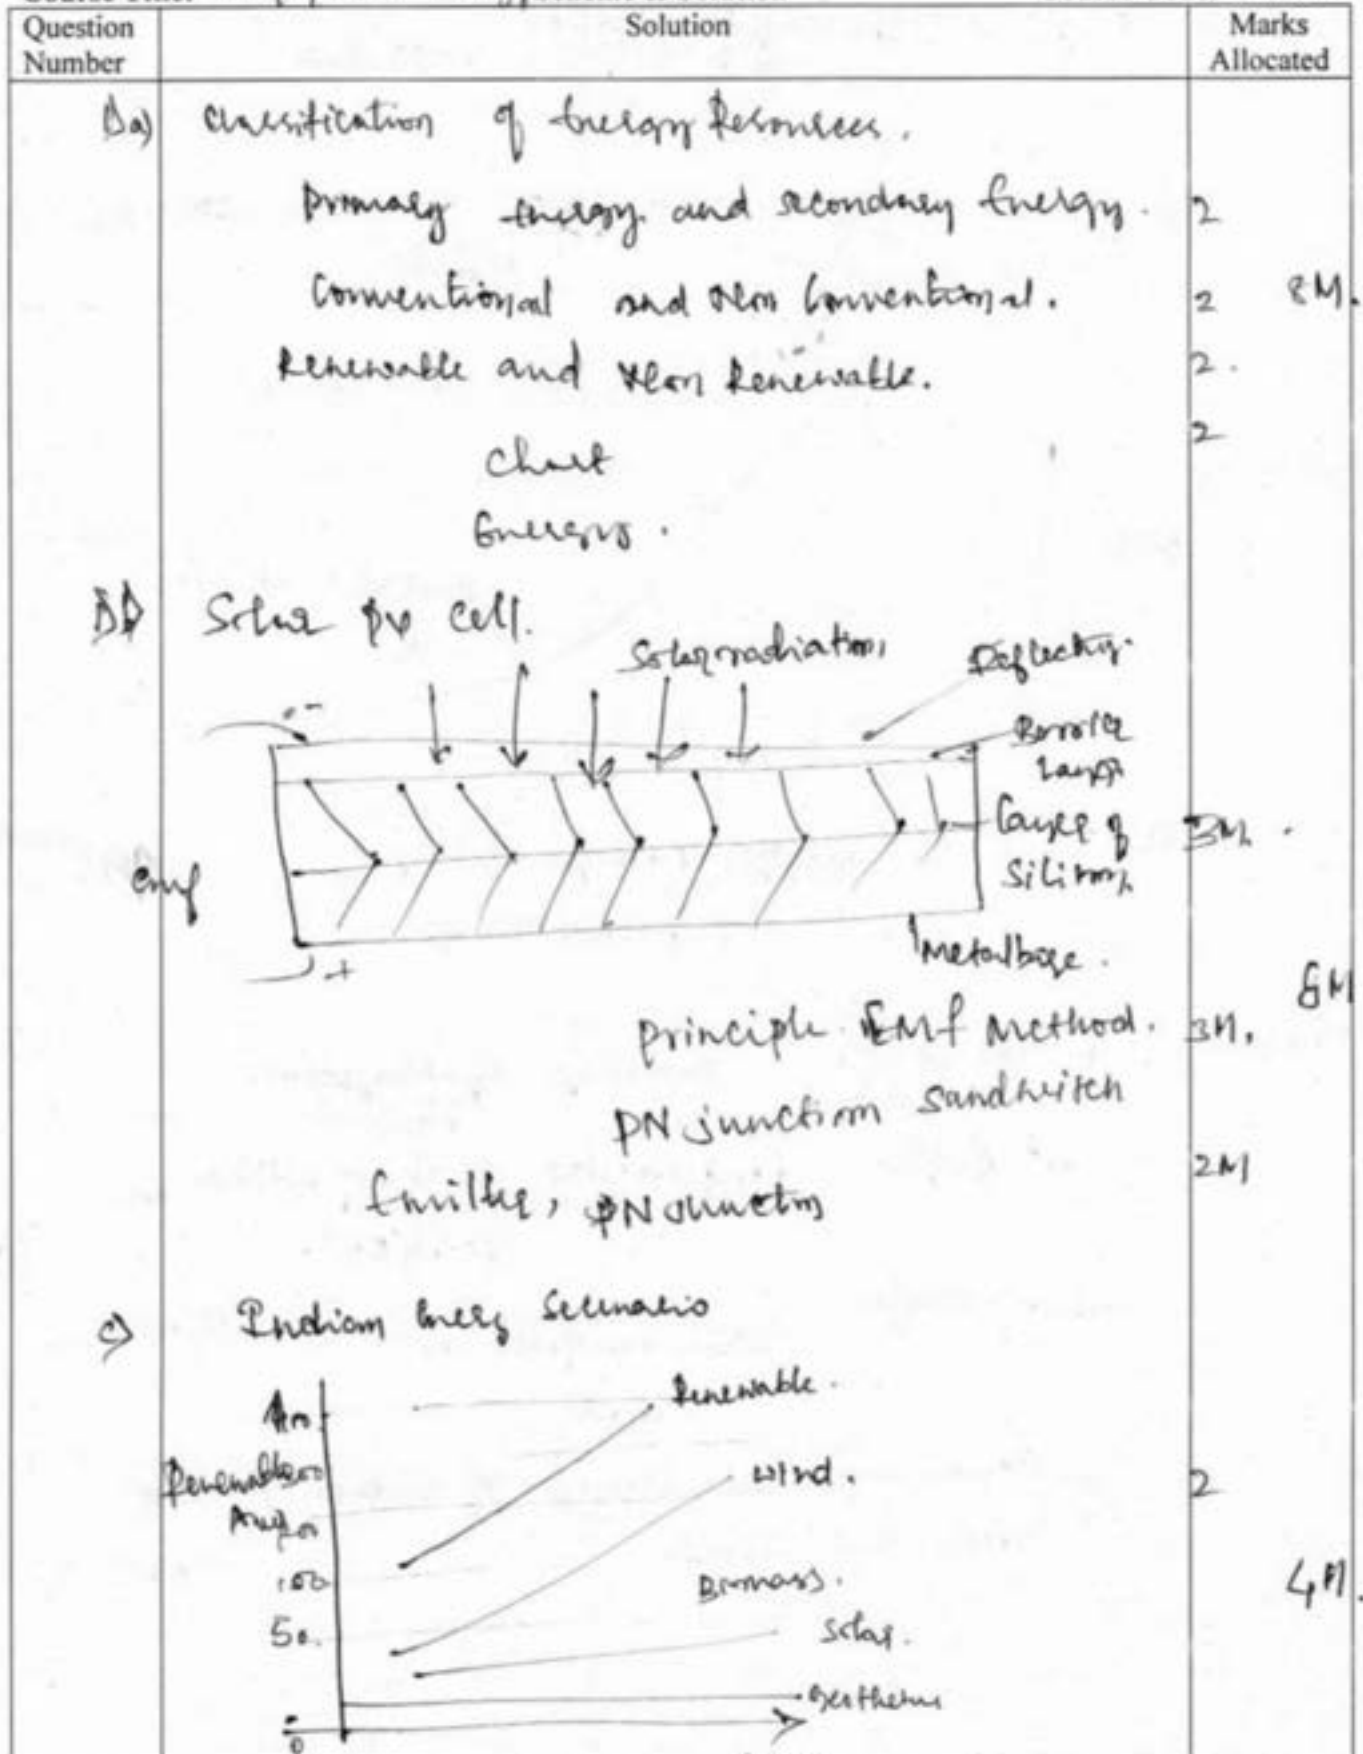 Question Number
Solution
Marks Allocated
1)a) Classification of Energy Resources.
Primary Energy and secondary Energy. 2
Conventional and Non Conventional. 2 8M.
Renewable and Non Renewable. 2.
2
Chart
Energy.
1)b) Solar PV Cell.
Solar radiation,
-
Barrier
Layer
Layer of 3M.
Silicon,
emf
Metalbase.
+
8M
principle EMF Method. 3M.
PN junction Sandwitch
2M
PN
c) Indian Energy Scenario
Renewable.
Renewable
wind. 2
100
Biomass. 4M.
50.
Solar.
Geotherm
0